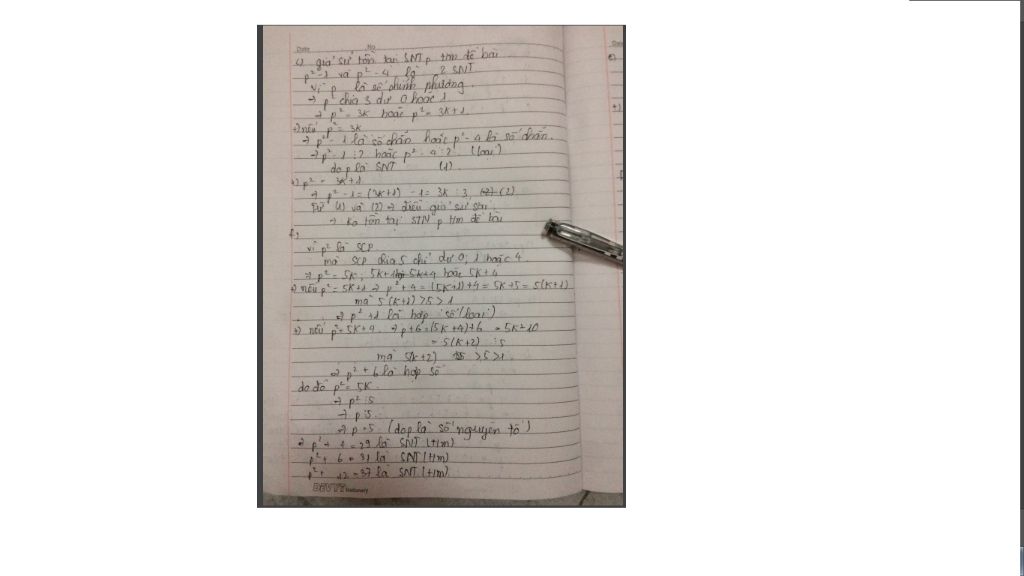 Date No
c) giả sử tồn tại SNT p t/m đề bài
p² - 1 và p² - 4 là 2 SNT
vì p là số chính phương
→ p² chia 3 dư 0 hoặc 1
→ p² = 3k hoặc p² = 3k+1
+) nếu p² = 3k
→ p² - 1 là số chẵn hoặc p² - 4 là số chẵn.
→ p² - 1 ⋮ 2 hoặc p² - 4 ⋮ 2 (loại)
do p là SNT (1)
+) p² = 3k+1
→ p² - 1 = (3k+1) - 1 = 3k ⋮ 3 (2)
Từ (1) và (2) → điều giả sử sai.
→ ko tồn tại STN p t/m đề bài
f,)
vì p² là SCP
mà SCP chia 5 chỉ dư 0, 1 hoặc 4
→ p² = 5k, 5k+1 hoặc 5k+4
+) nếu p² = 5k+1 → p² + 4 = (5k+1) + 4 = 5k+5 = 5(k+1)
mà 5(k+1) > 5 > 1
→ p² + 1 là hợp số (loại)
+) nếu p² = 5k+4. → p + 6 = (5k+4) + 6 = 5k+10
= 5(k+2) ⋮ 5
mà 5(k+2) > 5 > 1.
→ p² + 6 là hợp số
do đó p² = 5k.
→ p² ⋮ 5
→ p ⋮ 5.
→ p = 5. (do p là số nguyên tố)
→ p² + 4 = 29 là SNT (t/m)
p² + 6 = 31 là SNT (t/m)
p² + 12 = 37 là SNT (t/m)
Stationery